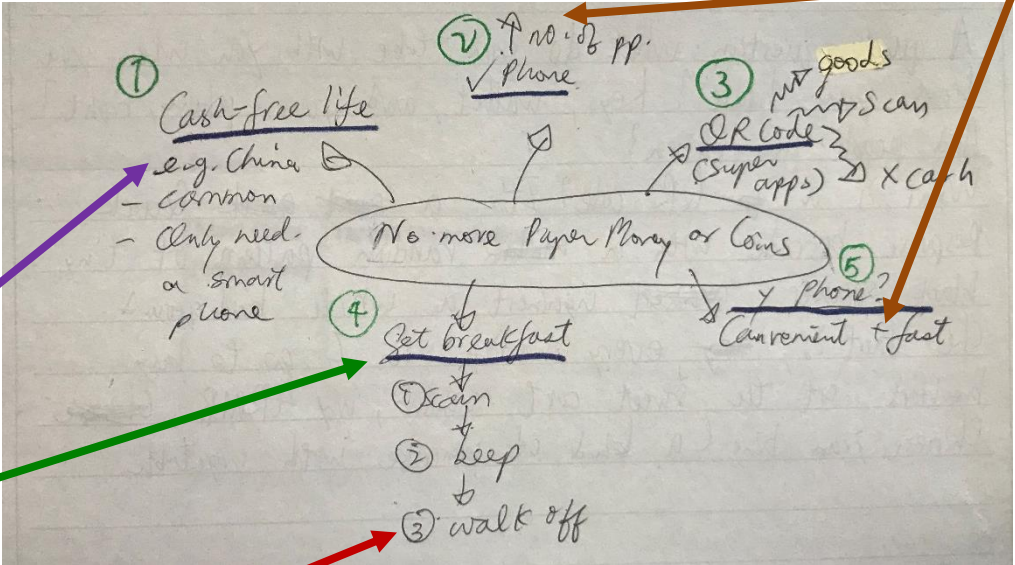 ①
Cash-free life
e.g. China
- common
- Only need
a smart
phone
②
↑ no. of pp.
✓ Phone
③
QR Code
(super
apps)
goods
scan
× cash
No more Paper Money or Coins
④
Set breakfast
① scan
② beep
③ walk off
⑤
y phone?
Convenient + fast